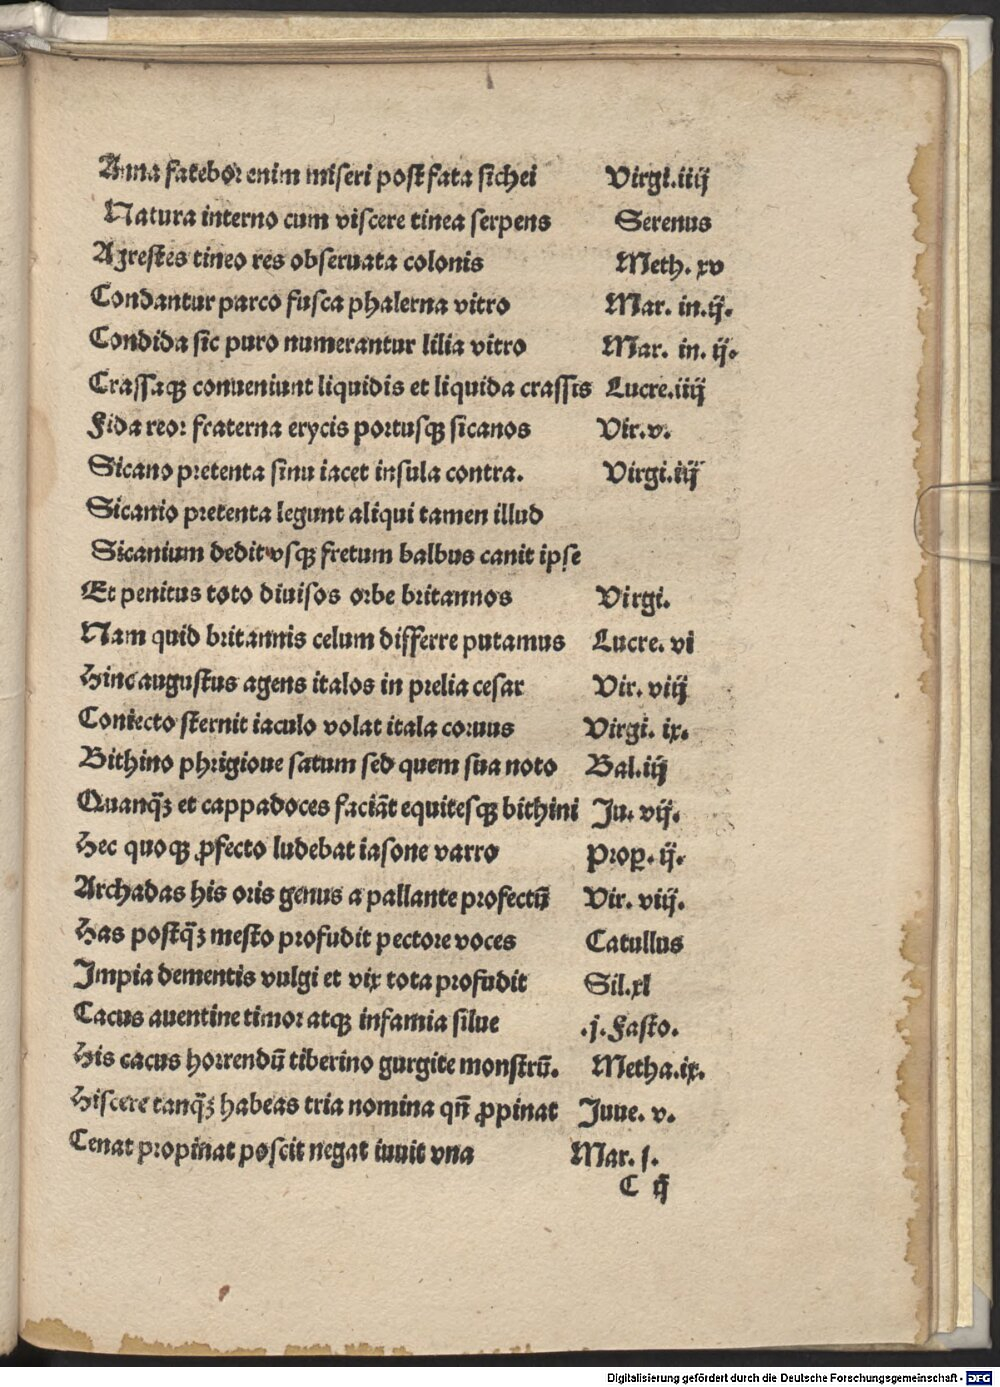 Anna fatebor enim miseri post fata sichei Virgi.iiij
Natura interno cum viscere tinea serpens Serenus
Agrestes tineo res obseruata colonis Meth. xv
Condantur parco fusca phalerna vitro Mar. in.ij.
Condida sic puro numerantur lilia vitro Mar. in. ij.
Crassaqꝫ conueniunt liquidis et liquida crassis Lucre.iiij
Fida reor fraterna erycis portusqꝫ sicanos Vir.v.
Sicano pretenta sinu iacet insula contra. Virgi.iij
Sicanio pretenta legunt aliqui tamen illud
Sicanium dedit vsqꝫ fretum balbus canit ipse
Et penitus toto diuisos orbe britannos Virgi.
Nam quid britannis celum differre putamus Lucre. vi
Hinc augustus agens italos in prelia cesar Vir. viij
Coniecto sternit iaculo volat itala cornus Virgi. ix.
Bithino phrigioue satum sed quem sua noto Bal.iij
Quanq̃ꝫ et cappadoces faciãt equitesqꝫ bithini Ju. vij.
Hec quoqꝫ ꝓfecto ludebat iasone varro Prop. ij.
Archadas his oris genus a pallante profectũ Vir. viij.
Has postq̃ꝫ mesto profudit pectore voces Catullus
Impia dementis vulgi et vix tota profudit Sil.xl
Cacus auentine timor atqꝫ infamia silue .j. Fasto.
His cacus horrendũ tiberino gurgite monstrũ. Metha.ix.
Hiscere tanq̃ꝫ habeas tria nomina qñ ꝓpinat Juue. v.
Cenat propinat poscit negat iuuit vna Mar. j.
C ij
Digitalisierung gefördert durch die Deutsche Forschungsgemeinschaft - DFG